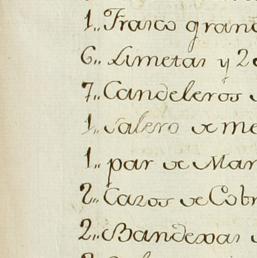 1,, Frasco gran
6,, Limetas y 2
7,, Candeleros
1,, Salero de me
1,, par de Mar
2,, Cazos de Cobr
2,, Bandexas